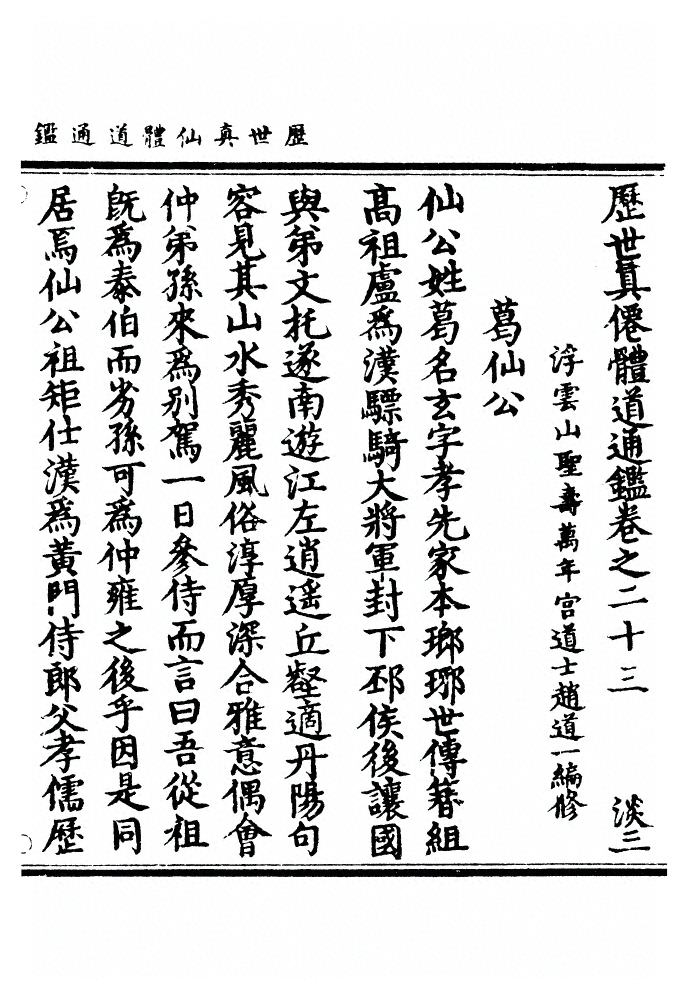 歷世真仙體道通鑑
歷世真僊體道通鑑卷之二十三 淡三
浮雲山聖壽萬年宮道士趙道一編修
葛仙公
仙公姓葛名玄字孝先家本瑯琊世傳簪組
高祖廬爲漢驃騎大將軍封下邳侯後讓國
與弟文托遂南遊江左逍遥丘壑適丹陽句
容見其山水秀麗風俗淳厚深合雅意偶會
仲弟孫來爲別駕一日參侍而言曰吾從祖
旣爲泰伯而劣孫可爲仲雍之後乎因是同
居焉仙公祖矩仕漢爲黃門侍郎父孝儒歷